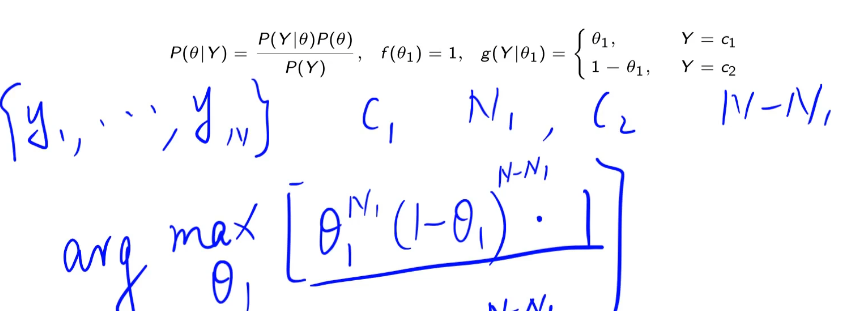 P(θ|Y) = P(Y|θ)P(θ) / P(Y), f(θ₁) = 1, g(Y|θ₁) = { θ₁, Y = c₁
1 − θ₁, Y = c₂
{y₁, ..., y_N} C₁ N₁, C₂ N−N₁
arg max_θ₁ [θ₁^N₁ (1−θ₁)^N−N₁ · 1]
N−N₁